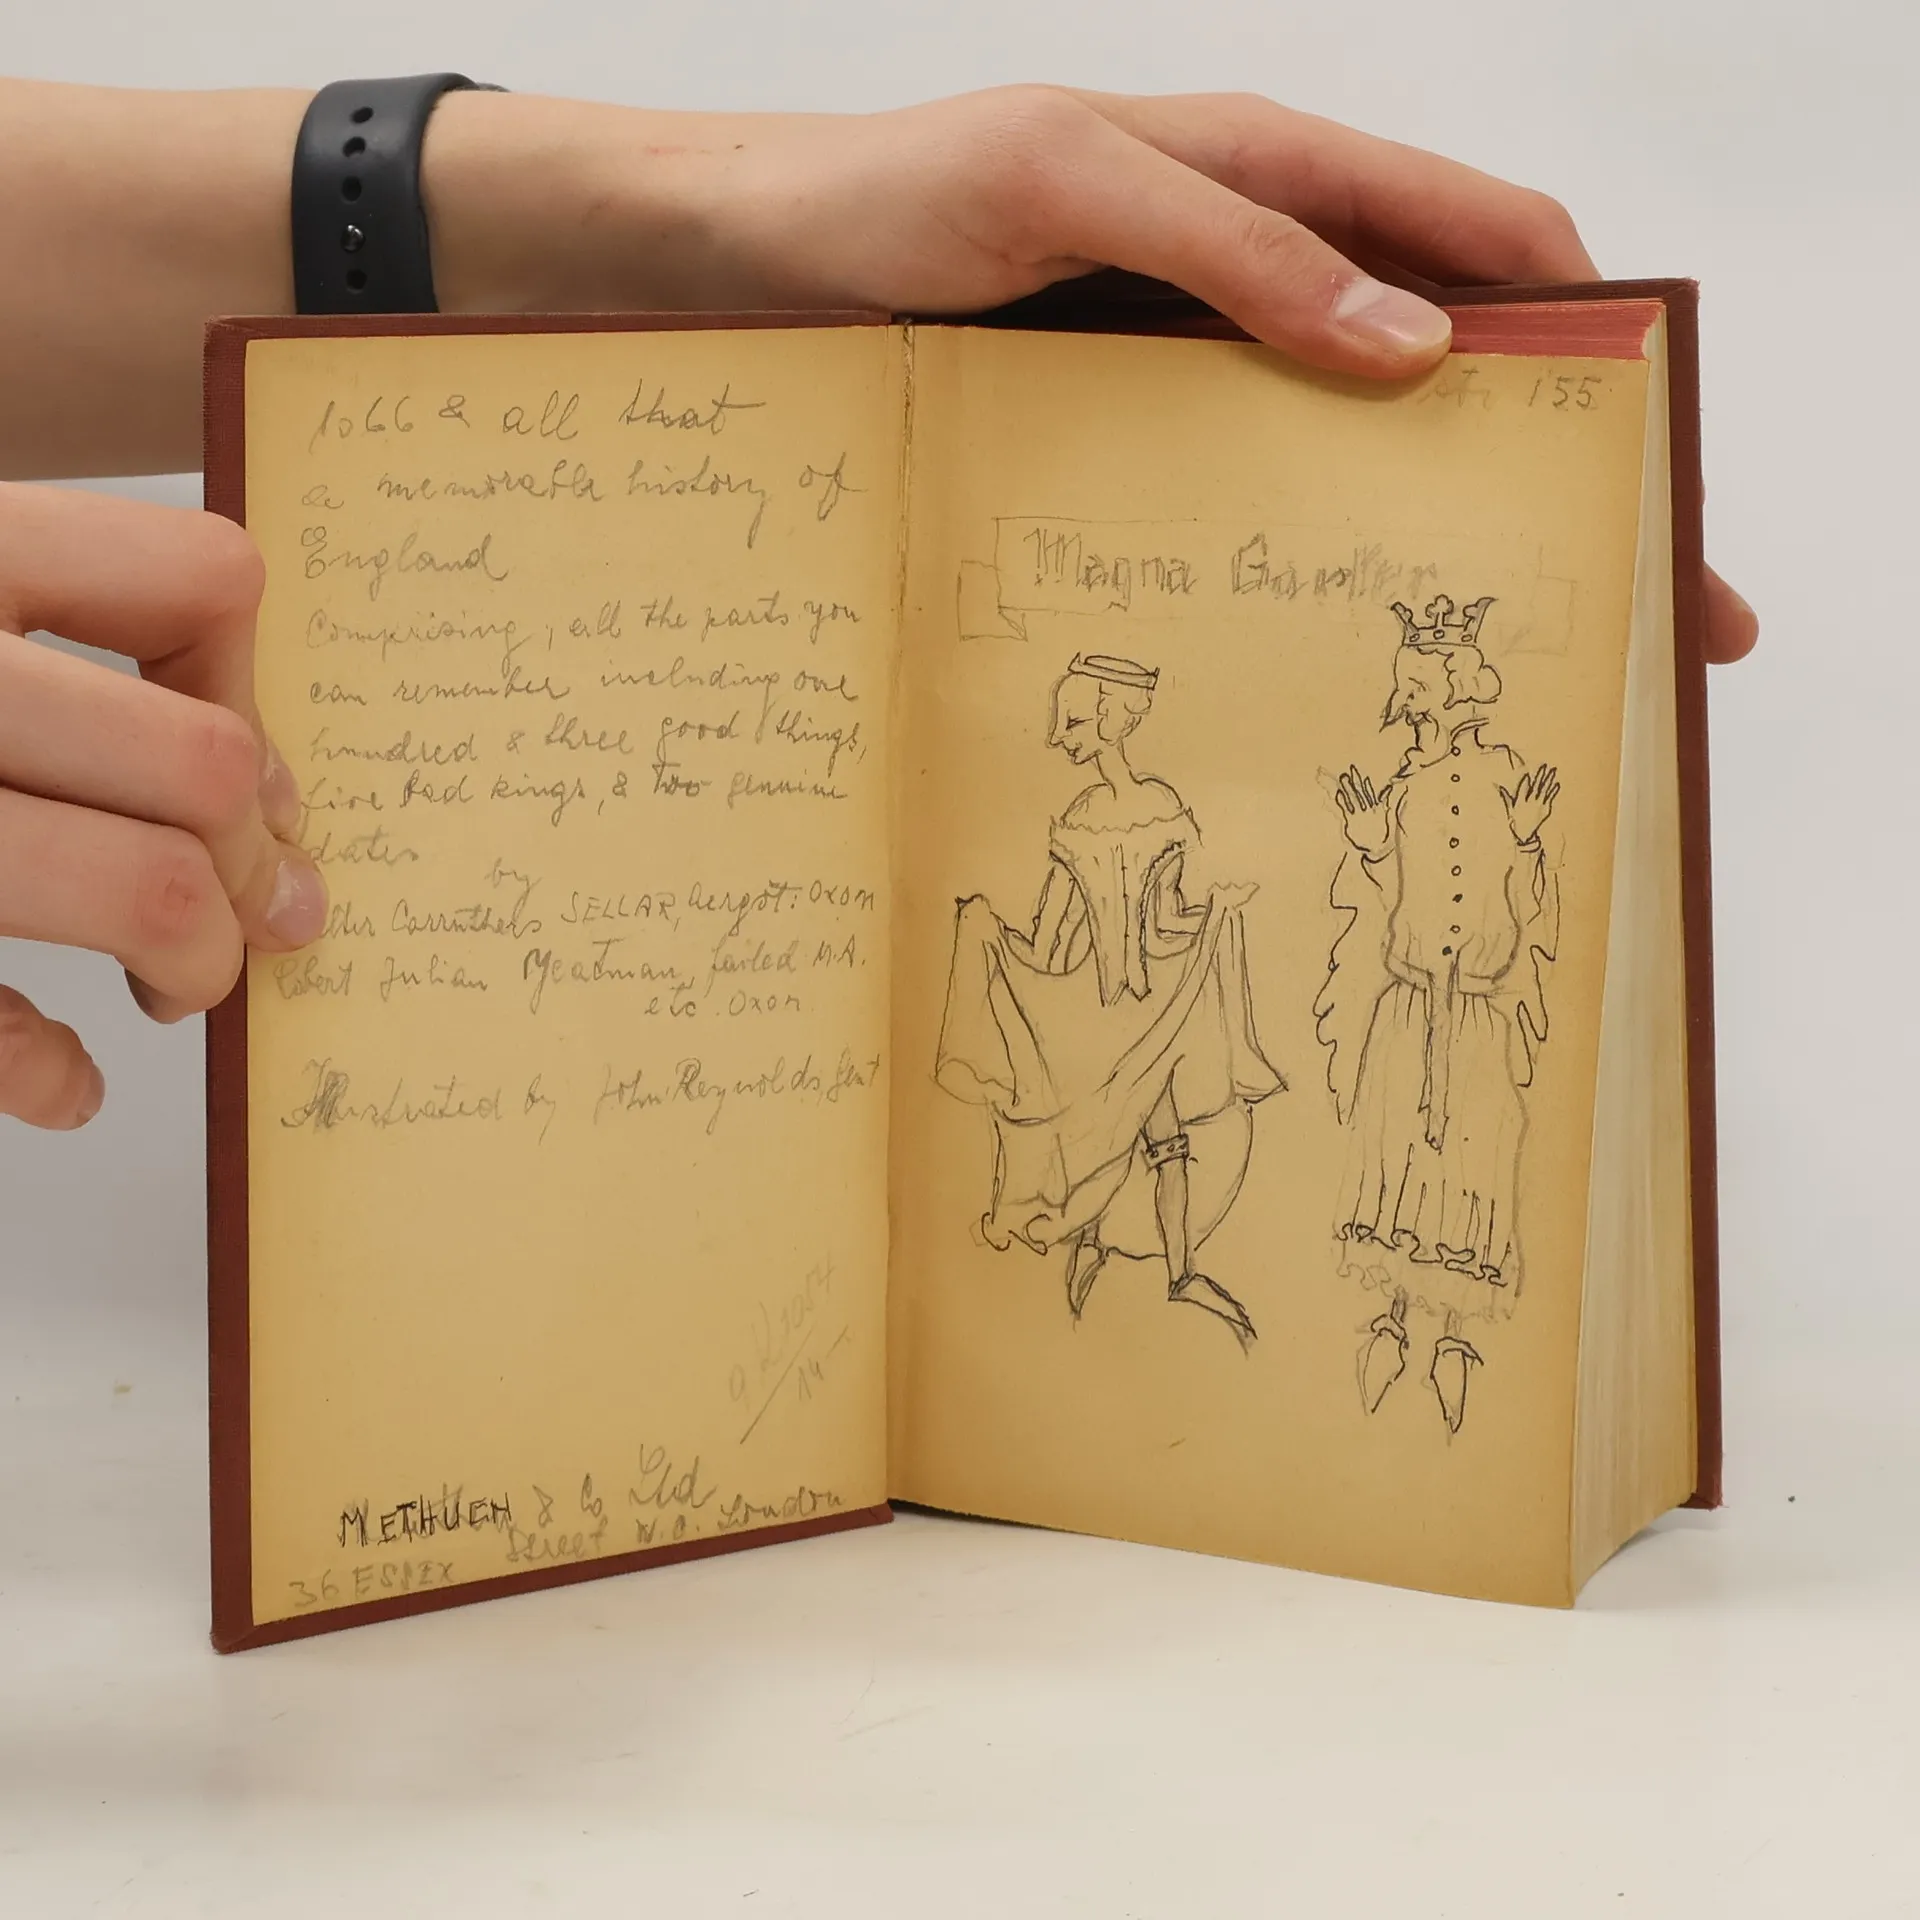 1066 & all that
a memorable history of
England
Comprising, all the parts you
can remember including one
hundred & three good things,
five Bad kings, & Two genuine
dates
by
lter Carruthers SELLAR, Aergöt: Oxon
obert Julian Yeatman, failed M.A.
etc. Oxon
Illustrated by John Reynolds, Gent
METHUEN & Co Ltd
36 ESSEX Street W.C. London
155
Magna